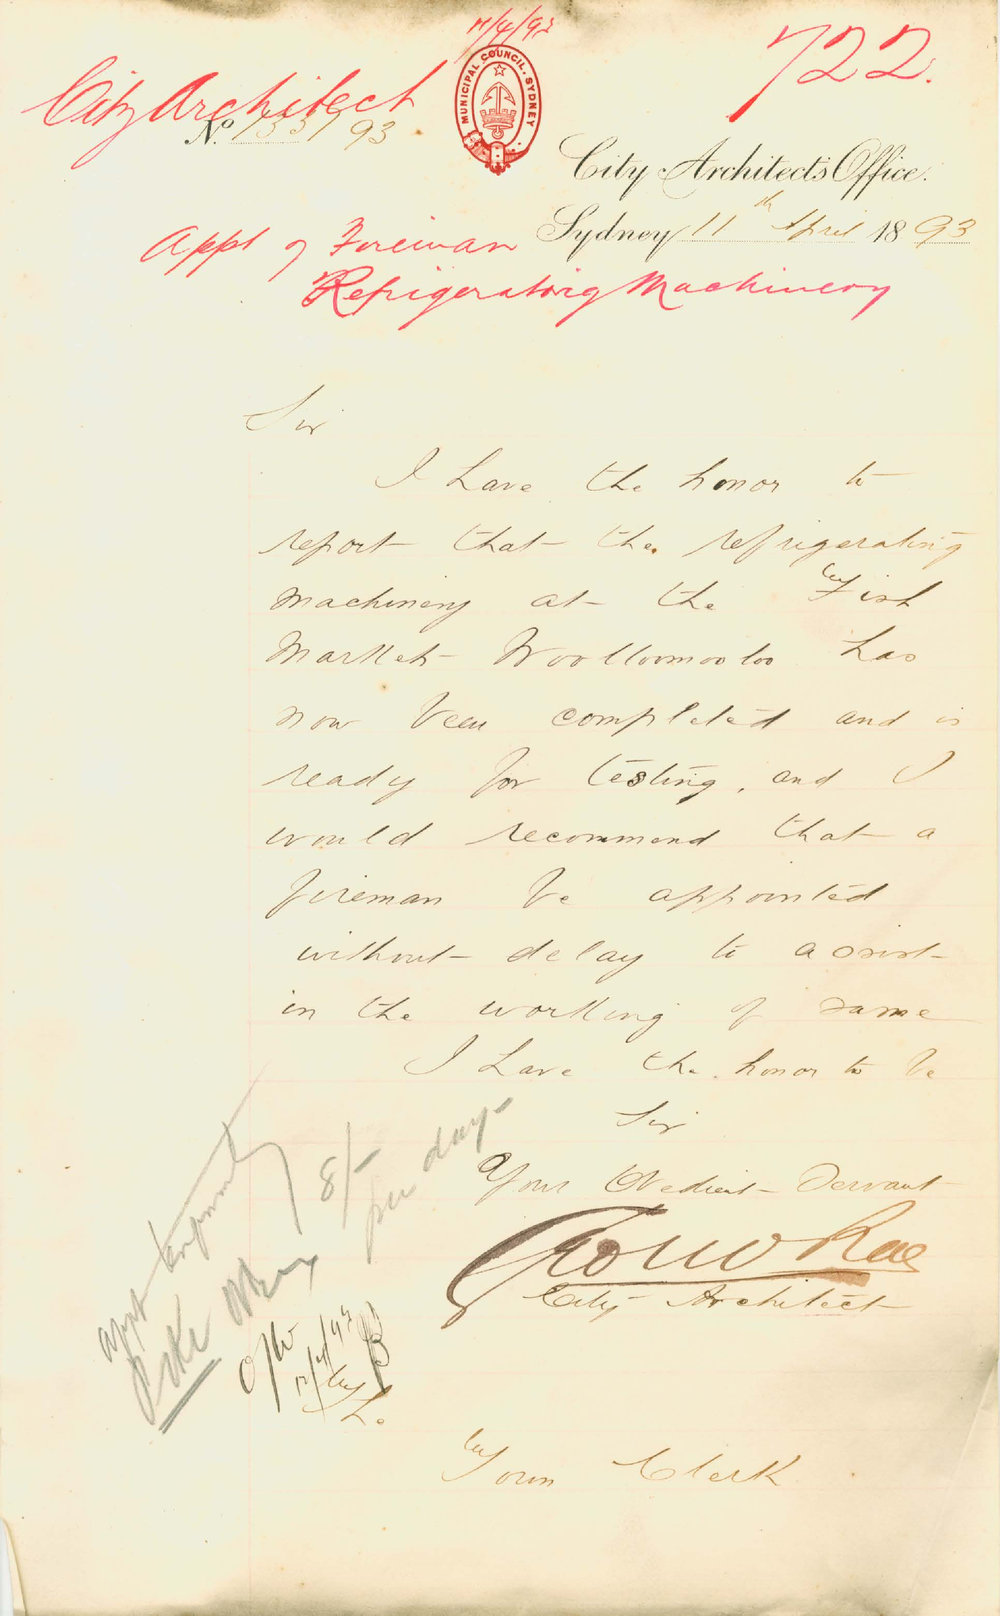 11/4/93
722.
City Architect
MUNICIPAL COUNCIL. SYDNEY
No. 1331/93
City Architect's Office.
Sydney 11th April 1893
Appt of Fireman
Refrigerating Machinery
Sir
I have the honor to
report that the refrigerating
machinery at the Fish
Market Woolloomooloo has
now been completed and is
ready for testing, and I
would recommend that a
fireman be appointed
without delay to assist
in the working of same
I have the honor to be
Sir
Your Obedient Servant
Geo W Rae
City Architect
Appt temporarily
8/- per day
11/4/93
The
Town Clerk